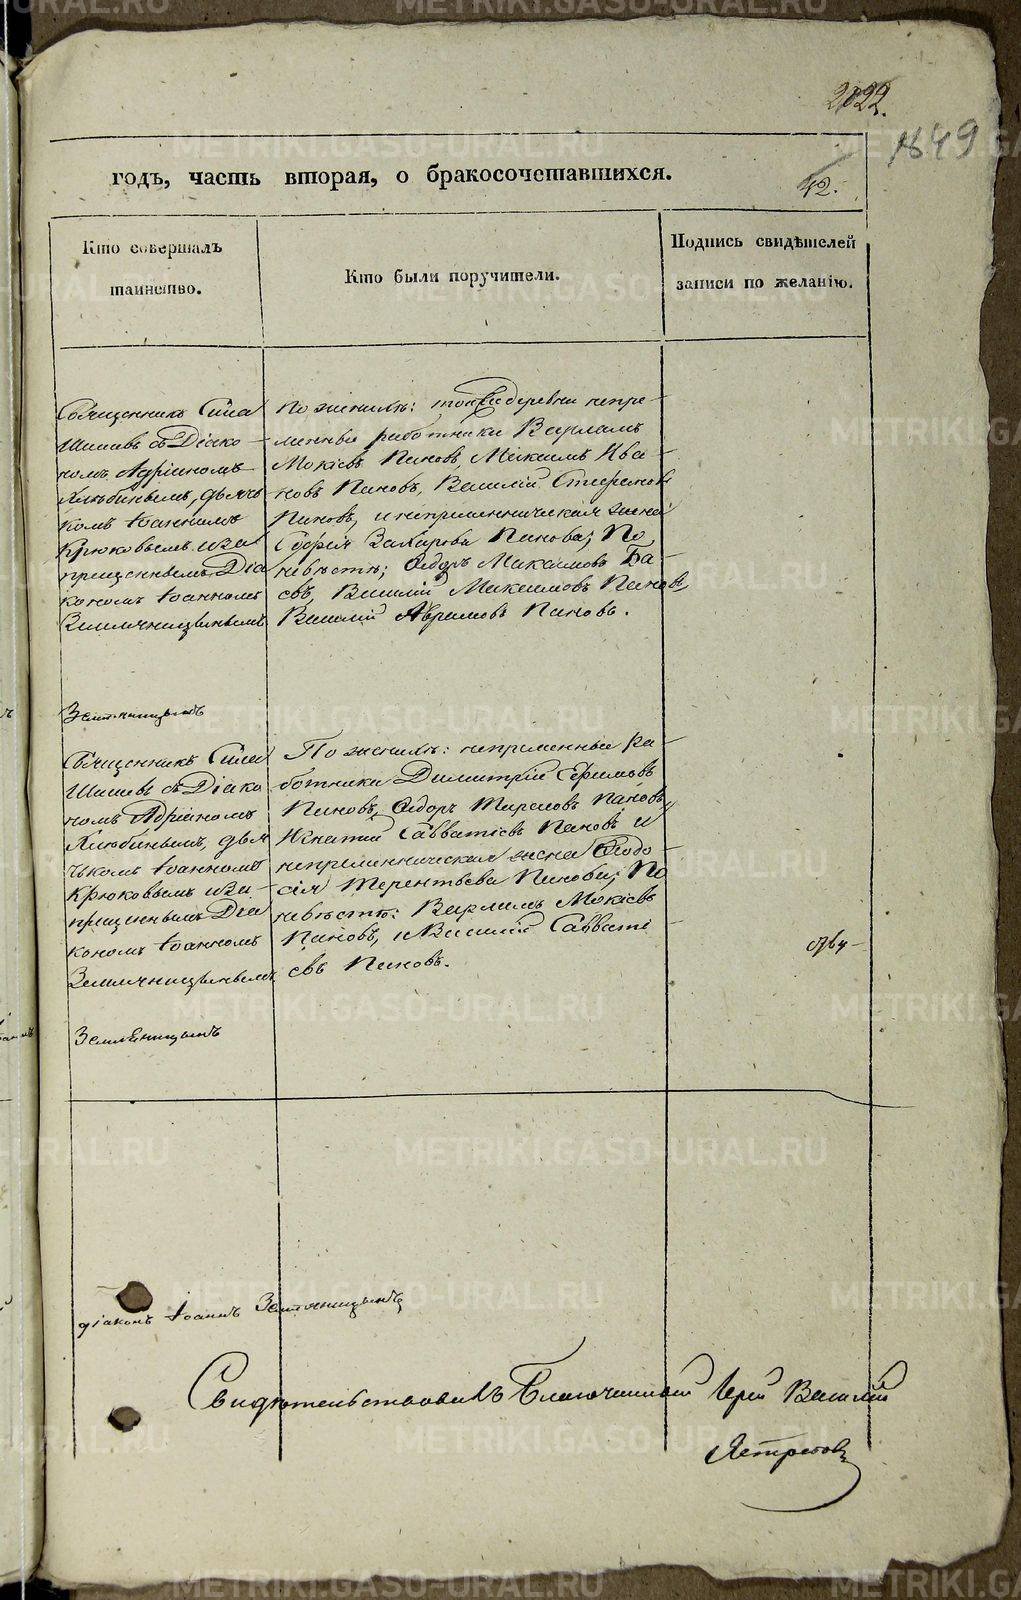 1849
42.
годъ, часть вторая, о бракосочетавшихся.
Кто совершалъ
таинство.
Кто были поручители.
Подпись свидѣтелей
записи по желанію.
Священникъ Сила
Шишевъ съ Діако-
номъ Адріаномъ
Хлюбинымъ, дьяч
комъ Іоанномъ
Крюковымъ и За
прещеннымъ Діа
кономъ Іоанномъ
Земляницынымъ
По женихѣ: тойже деревни непре-
менные работники Варламъ
Мокіевъ Пановъ, Максимъ Ива-
новъ Пановъ, Василій Стефановъ
Пановъ, и непременническая жена
Софія Захарова Панова; По
невѣстѣ; Ѳедоръ Максимовъ Ба-
евъ, Василій Максимовъ Пановъ,
Василій Аврамовъ Пановъ.
Земляницынъ
Священникъ Сила
Шишевъ съ Діако
номъ Адріаномъ
Хлюбинымъ, дья
чкомъ Іоанномъ
Крюковымъ и За-
прещеннымъ Діа
кономъ Іоанномъ
Земляницынымъ
По женихѣ: непременные ра-
ботники Димитрій Ефимовъ
Пановъ, Ѳедоръ Пановъ,
Игнатій Савватіевъ Пановъ и
непременническая жена Ѳеодо-
сія Терентьева Панова; По
невѣстѣ: Варламъ Мокіевъ
Пановъ, и Василій Савваті-
евъ Пановъ.
Земляницынъ
діаконъ Іоаннъ Земляницынъ
Свидѣтельствовалъ Благочинный Іерей Василій